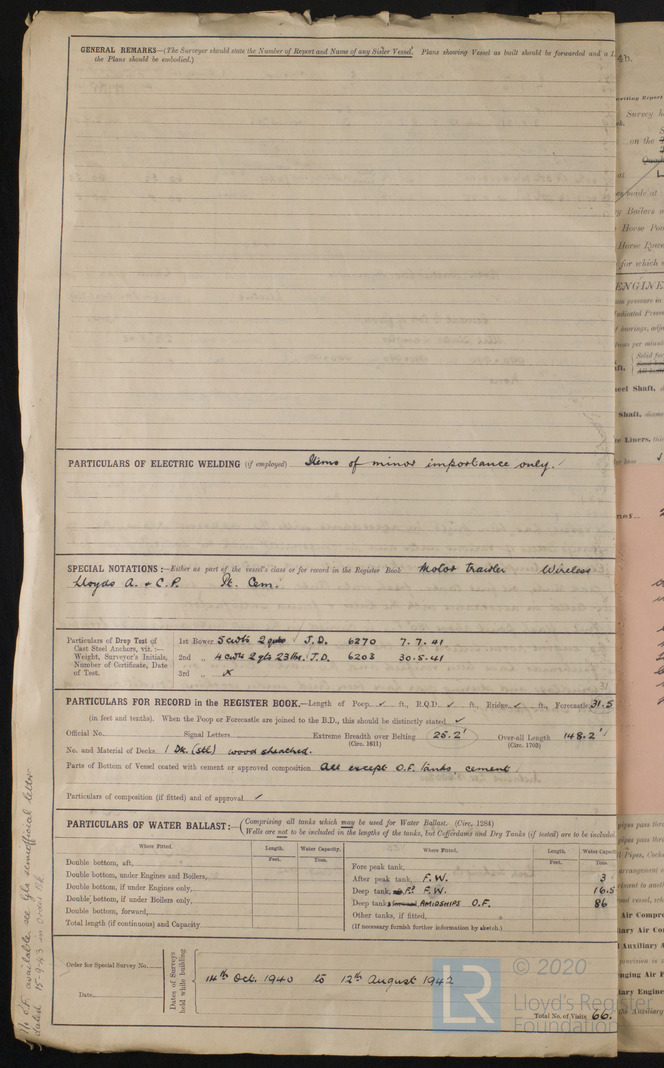 GENERAL REMARKS—(The Surveyor should state the Number of Report and Name of any Sister Vessel. Plans showing Vessel as built should be forwarded and a
the Plans should be embodied.)
PARTICULARS OF ELECTRIC WELDING (if employed) Items of minor importance only.
SPECIAL NOTATIONS:—Either as part of the vessel's class or for record in the Register Book Motor Trawler Wireless
Lloyds A. & C.P. Pt. Cem.
Particulars of Drop Test of
Cast Steel Anchors, viz.:—
Weight, Surveyor's Initials,
Number of Certificate, Date
of Test.
1st Bower 5 cwts 2 qrs J.D. 6270 7.7.41
2nd „ 4 cwts 2 qts 23 lbs. J.D. 6203 30.5.41
3rd „ x
PARTICULARS FOR RECORD in the REGISTER BOOK.—Length of Poop ✓ ft., R.Q.D. ✓ ft., Bridge ✓ ft., Forecastle 31.5
(in feet and tenths). When the Poop or Forecastle are joined to the B.D., this should be distinctly stated ✓
Official No. Signal Letters Extreme Breadth over Belting 25.2' Over-all Length 148.2'
(Circ. 1611) (Circ. 1703)
No. and Material of Decks 1 Dk. (stl) wood sheathed.
Parts of Bottom of Vessel coated with cement or approved composition All except O.F. Tanks cement
Particulars of composition (if fitted) and of approval ✓
PARTICULARS OF WATER BALLAST:— (Comprising all tanks which may be used for Water Ballast. (Circ. 1284)
Wells are not to be included in the lengths of the tanks, but Cofferdams and Dry Tanks (if tested) are to be included
Where Fitted. Length. Water Capacity. Where Fitted. Length. Water Capacit
Feet. Tons. Feet. Tons.
Double bottom, aft,
Double bottom, under Engines and Boilers,
Double bottom, if under Engines only,
Double bottom, if under Boilers only,
Double bottom, forward,
Total length (if continuous) and Capacity
Fore peak tank,
After peak tank, F.W. 3
Deep tank, F.W. 16.5
Deep tank, AMIDSHIPS O.F. 86
Other tanks, if fitted,
(If necessary furnish further information by sketch.)
Order for Special Survey No.
Date
Dates of Surveys
held while building
14th Oct. 1940 to 12th August 1942
Total No. of Visits 66.
see Gls semiofficial letter
dated 15-9-43
© 2020
LR
Lloyd's Register
Foundation
4b.
on the
at
ENGINE
Shaft,